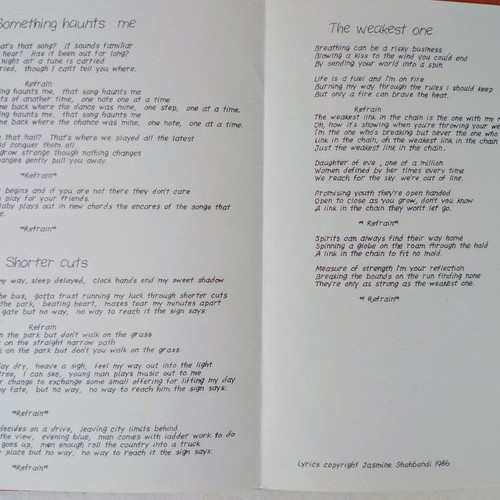 Something haunts me
at's that song? it sounds familiar
hear? Has it been out for long?
night air a tune is carried
ried, though I can't tell you where.
Refrain
ing haunts me, that song haunts me
ts of another time, one note one at a time
me back where the dance was mine, one step, one at a time.
ing haunts me, that song haunts me
me back where the chance was mine, one note, one at a time.
that hall? That's where we played all the latest
ld conquer them all
grow strange though nothing changes
anges gently pull you away.
*Refrain*
begins and if you are not there they don't care
play for your friends.
aby plays out in new chords the encores of the song that
e.
*Refrain*
Shorter cuts
my way, sleep delayed, clock hands end my sweet shadow
he bus, gotta trust running my luck through shorter cuts
the park, beating heart, mazes tear my minutes apart
gate but no way, no way to reach it the sign says:
Refrain
n the park but don't walk on the grass
on the straight narrow path
on the park but don't you walk on the grass.
lay dry, heave a sigh, feel my way out into the light
tree, I can see, young man plays music out to me
r change to exchange some small offering for lifting my day
my fate, but no way, no way to reach him the sign says:
*Refrain*
decides on a drive, leaving city limits behind
the view, evening blue, man comes with ladder work to do
goes up, men enough roll the country into a truck
place but no way, no way to reach it the sign says:
*Refrain*
The weakest one
Breathing can be a risky business
Blowing a kiss to the wind you could end
By sending your world into a spin.
Life is a fuel and I'm on fire
Burning my way through the rules I should keep
But only a fire can brave the heat.
Refrain
The weakest link in the chain is the one with my n
Oh, how it's showing when you're throwing your we
I'm the one who's breaking but never the one who
Link in the chain, oh the weakest link in the chain
Just the weakest link in the chain.
Daughter of eve, one of a million
Women defined by her times every time
We reach for the sky, we're out of line.
Promising youth they're open handed
Open to close as you grow, don't you know
A link in the chain they won't let go.
* Refrain*
Spirits can always find their way home
Spinning a globe on the roam through the hold
A link in the chain to fit no mold.
Measure of strength I'm your reflection
Breaking the bounds on the run finding none
They're only as strong as the weakest one.
* Refrain*
Lyrics copyright Jasmine Shahbandi 1986